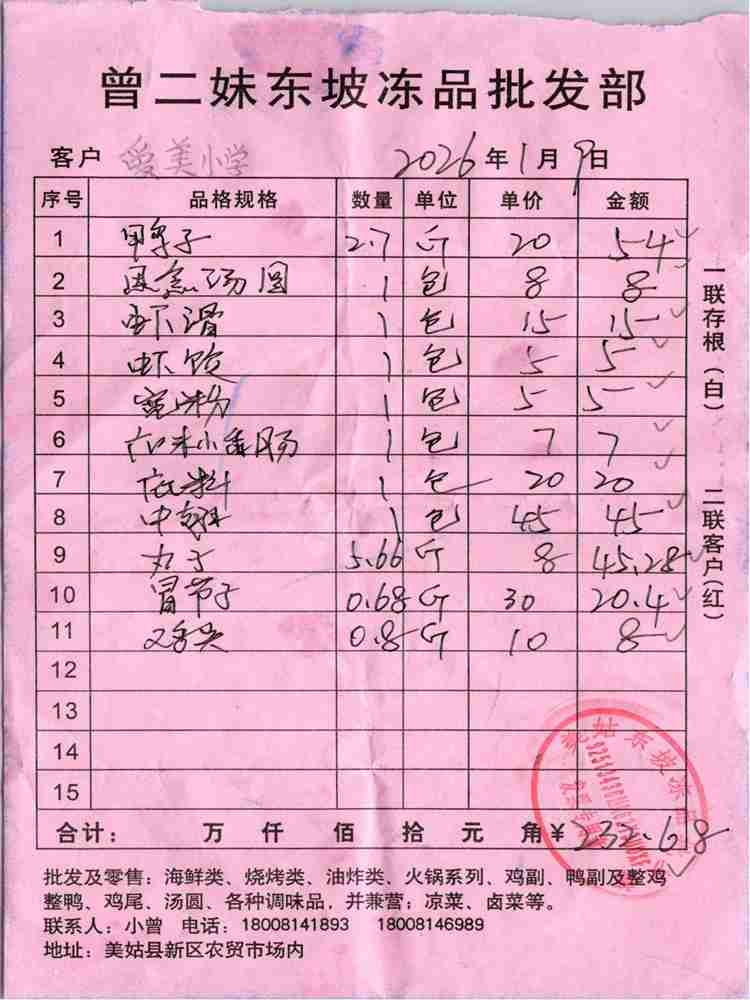 曾二妹东坡冻品批发部
客户 爱美小学 2026年1月9日
序号 品格规格 数量 单位 单价 金额
1 鸭子 2.7 斤 20 54
2 汤圆 1 包 8 8
3 虾滑 1 包 15 15
4 虾饺 1 包 5 5
5 宽粉 1 包 5 5
6 小香肠 1 包 7 7
7 底料 1 包 20 20
8 中翅 1 包 45 45
9 丸子 5.66 斤 8 45.28
10 冒节子 0.68 斤 30 20.4
11 0.8 斤 10 8
12
13
14
15
合计： 万 仟 佰 拾 元 角 ¥232.68
批发及零售：海鲜类、烧烤类、油炸类、火锅系列、鸡副、鸭副及整鸡
整鸭、鸡尾、汤圆、各种调味品，并兼营：凉菜、卤菜等。
联系人：小曾 电话：18008141893 18008146989
地址：美姑县新区农贸市场内
一联存根（白） 二联客户（红）
姑东坡冻品